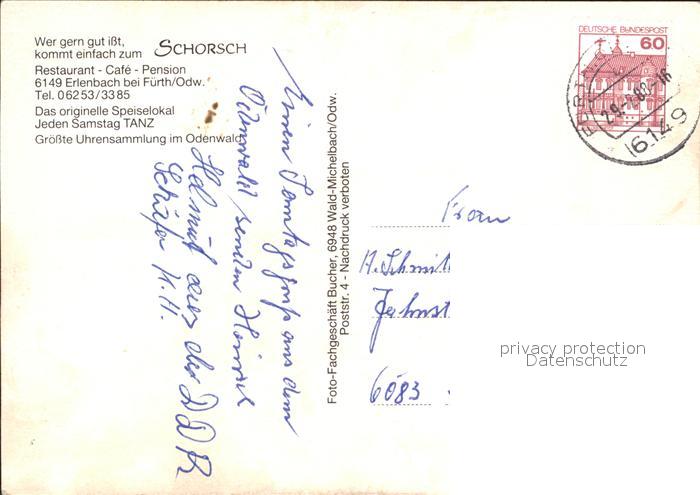 Wer gern gut ißt,
kommt einfach zum SCHORSCH
Restaurant - Café - Pension
6149 Erlenbach bei Fürth/Odw.
Tel. 06253/3385
Das originelle Speiselokal
Jeden Samstag TANZ
Größte Uhrensammlung im Odenwald
Einen Sonntagsgruß aus dem
Odenwald senden
Helmut aus der DDR
Schäfer K.H.
Foto-Fachgeschäft Bucher, 6948 Wald-Michelbach/Odw.
Poststr. 4 - Nachdruck verboten
DEUTSCHE BUNDESPOST
60
6149
Frau
H. Schmit
Jahnst
6083
privacy protection
Datenschutz